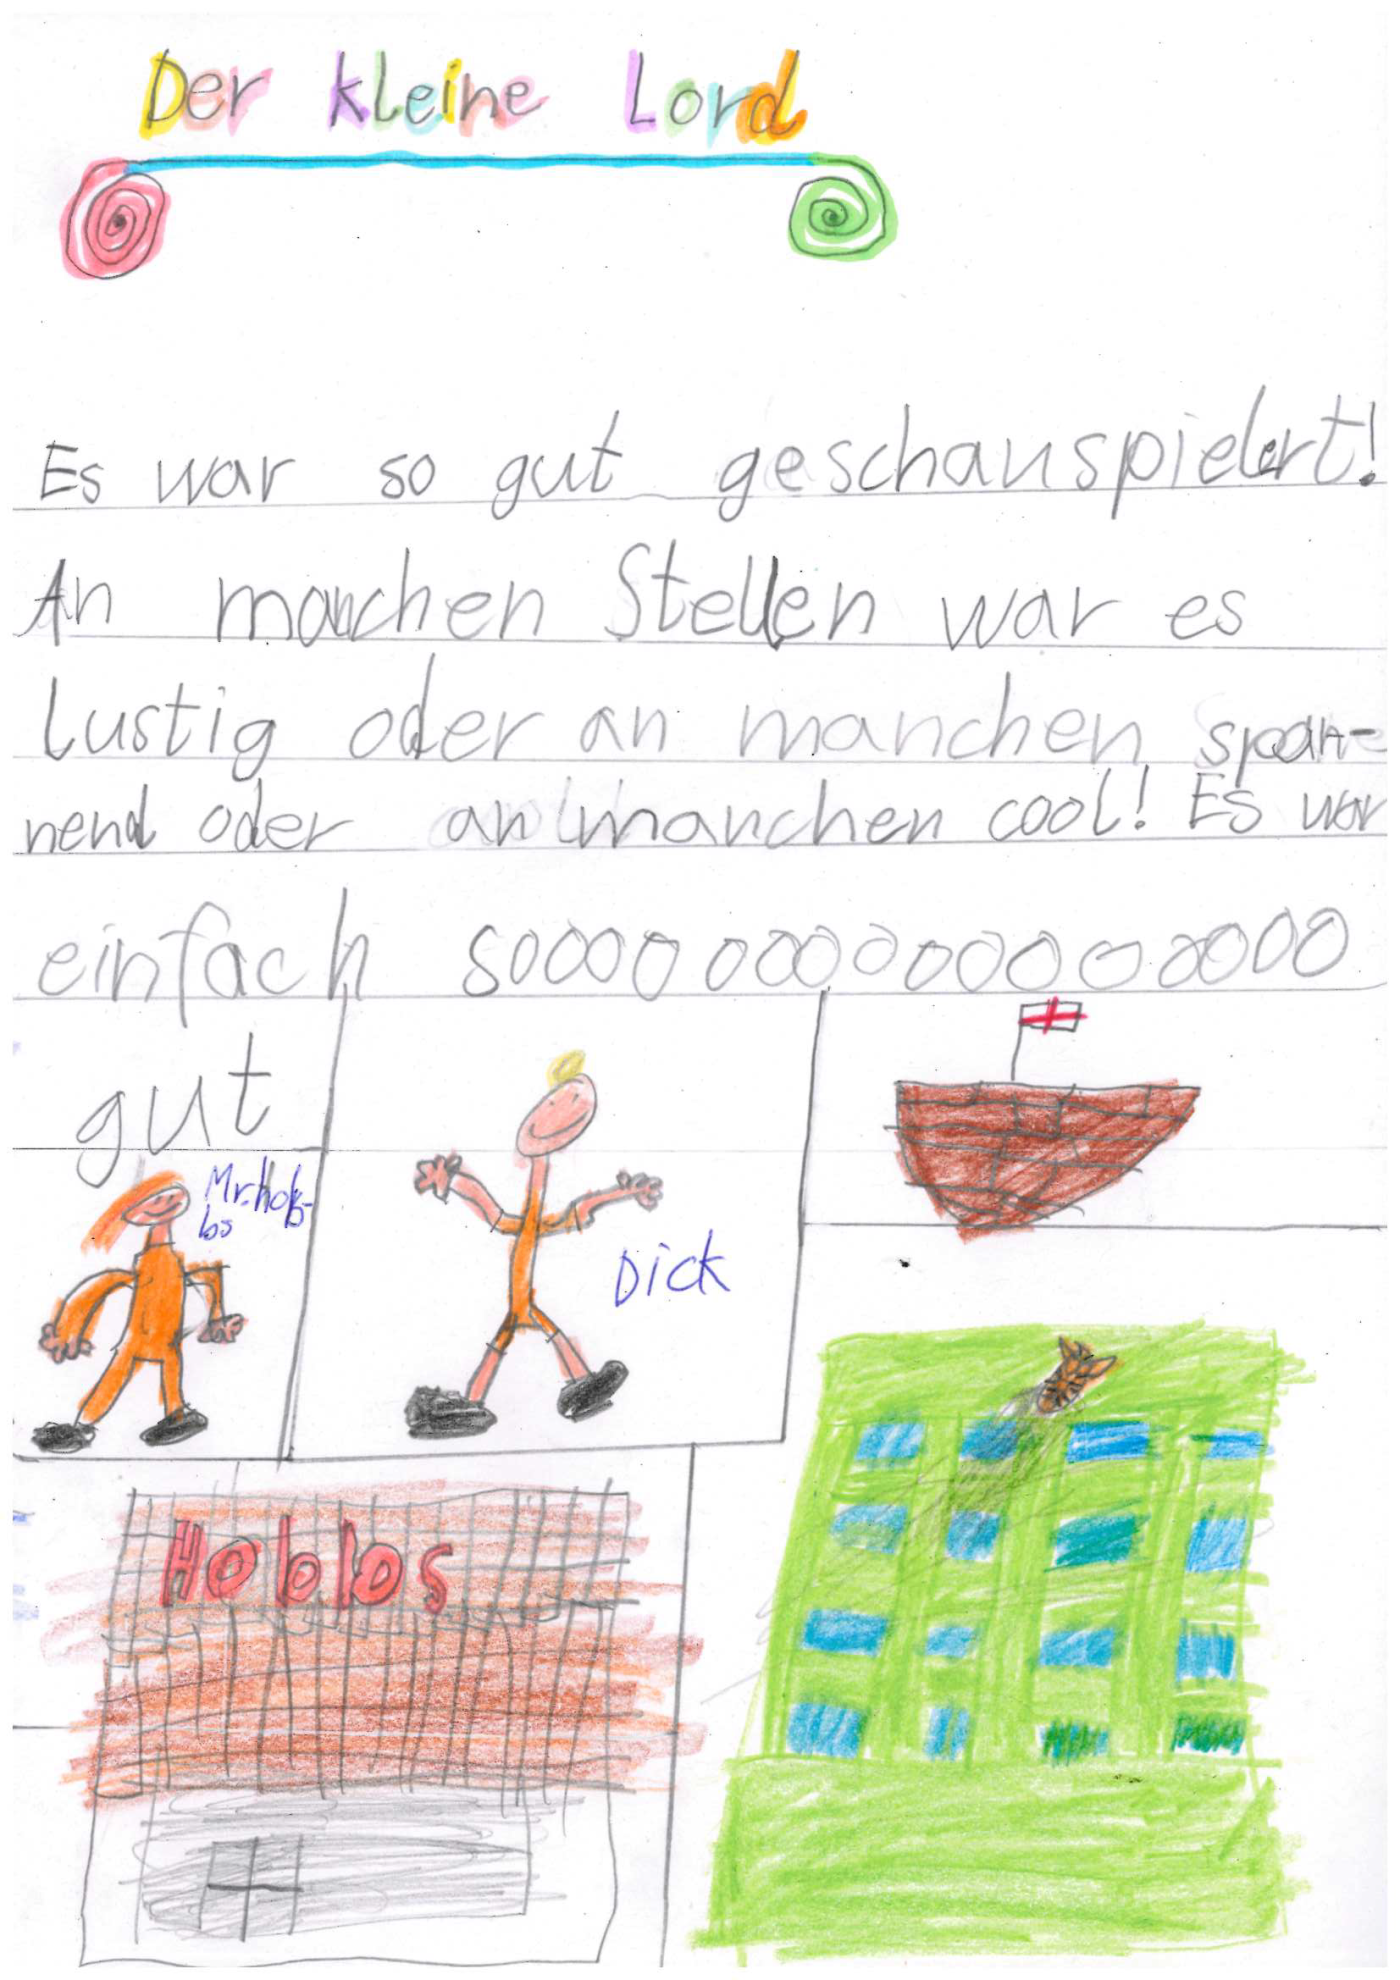 Der kleine Lord
Es war so gut geschauspielert!
An manchen Stellen war es
lustig oder an manchen span-
nend oder an manchen cool! Es war
einfach sooooooooooooooooo
gut
Mr. hob-
bs
Dick
Hobbs